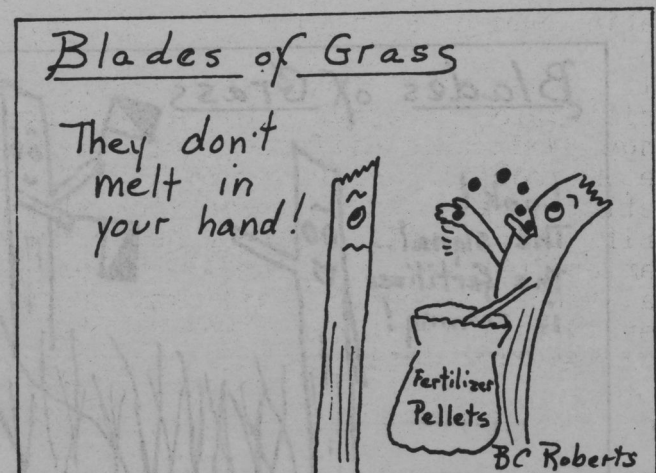 Blades of Grass
They don't
melt in
your hand!
Fertilizer
Pellets
BC Roberts